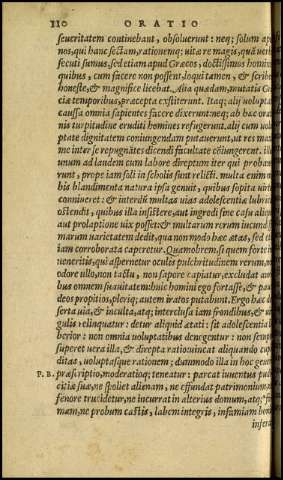 110 ORATIO
seueritatem continebant, obsoluerunt: neq; solum apud
nos, qui hanc sectam, rationemq; uitæ re magis, quà uerbis
secuti sumus, sed etiam apud Græcos, doctissimos homines
quibus, cum facere non possent, loqui tamen, & scribere
honeste, & magnifice licebat. Alia quædam, mutatis Græ
ciæ temporibus, præcepta exstiterunt. Itaq; alij uoluptatis
caussa omnia sapientes facere dixerunt: neq; ab hac oratio
nis turpitudine eruditi homines refugerunt. alij cum uolu
ptate dignitatem coniungendam putauerunt, ut res maxi
me inter se repugnātes dicendi facultate cōiungerent. illud
unum ad laudem cum labore direptum iter qui probaue
runt, prope iam soli in scholis sunt relicti. multa enim no
bis blandimenta natura ipsa genuit, quibus sopita uirtus
conniueret: & interdū multas uias adolescentiæ lubricas
ostendit, quibus illa insistere, aut ingredi sine casu aliquo
aut prolaptione uix posset: & multarum rerum iucundissi
marum uarietatem dedit, qua non modo hæc ætas, sed etiam
iam corroborata caperetur. Quamobrem, si quem forte in
ueneritis, qui aspernetur oculis pulchritudinem rerum, non
odore ullo, non tactu, non sapore capiatur, excludat auri
bus omnem suauitatem: huic homini ego fortasse, & pauci
deos propitios, pleriq; autem iratos putabunt. Ergo hæc de
serta uia, & inculta, atq; interclusa iam frondibus, & uir
gulis relinquatur: detur aliquid ætati: sit adolescentia li
berior: non omnia uoluptatibus denegentur: non semper
superet uera illa, & directa ratio: uincat aliquando cupi
ditas, uoluptasque rationem; dummodo illa in hoc genere
P. B. præscriptio, moderatioq; teneatur: parcat iuuentus pudi
citiæ suæ, ne spoliet alienam, ne effundat patrimonium, ne
fenore trucidetur, ne incurrat in alterius domum, atq; fa
mam, ne probum castis, labem integris, infamiam bonis
inferat